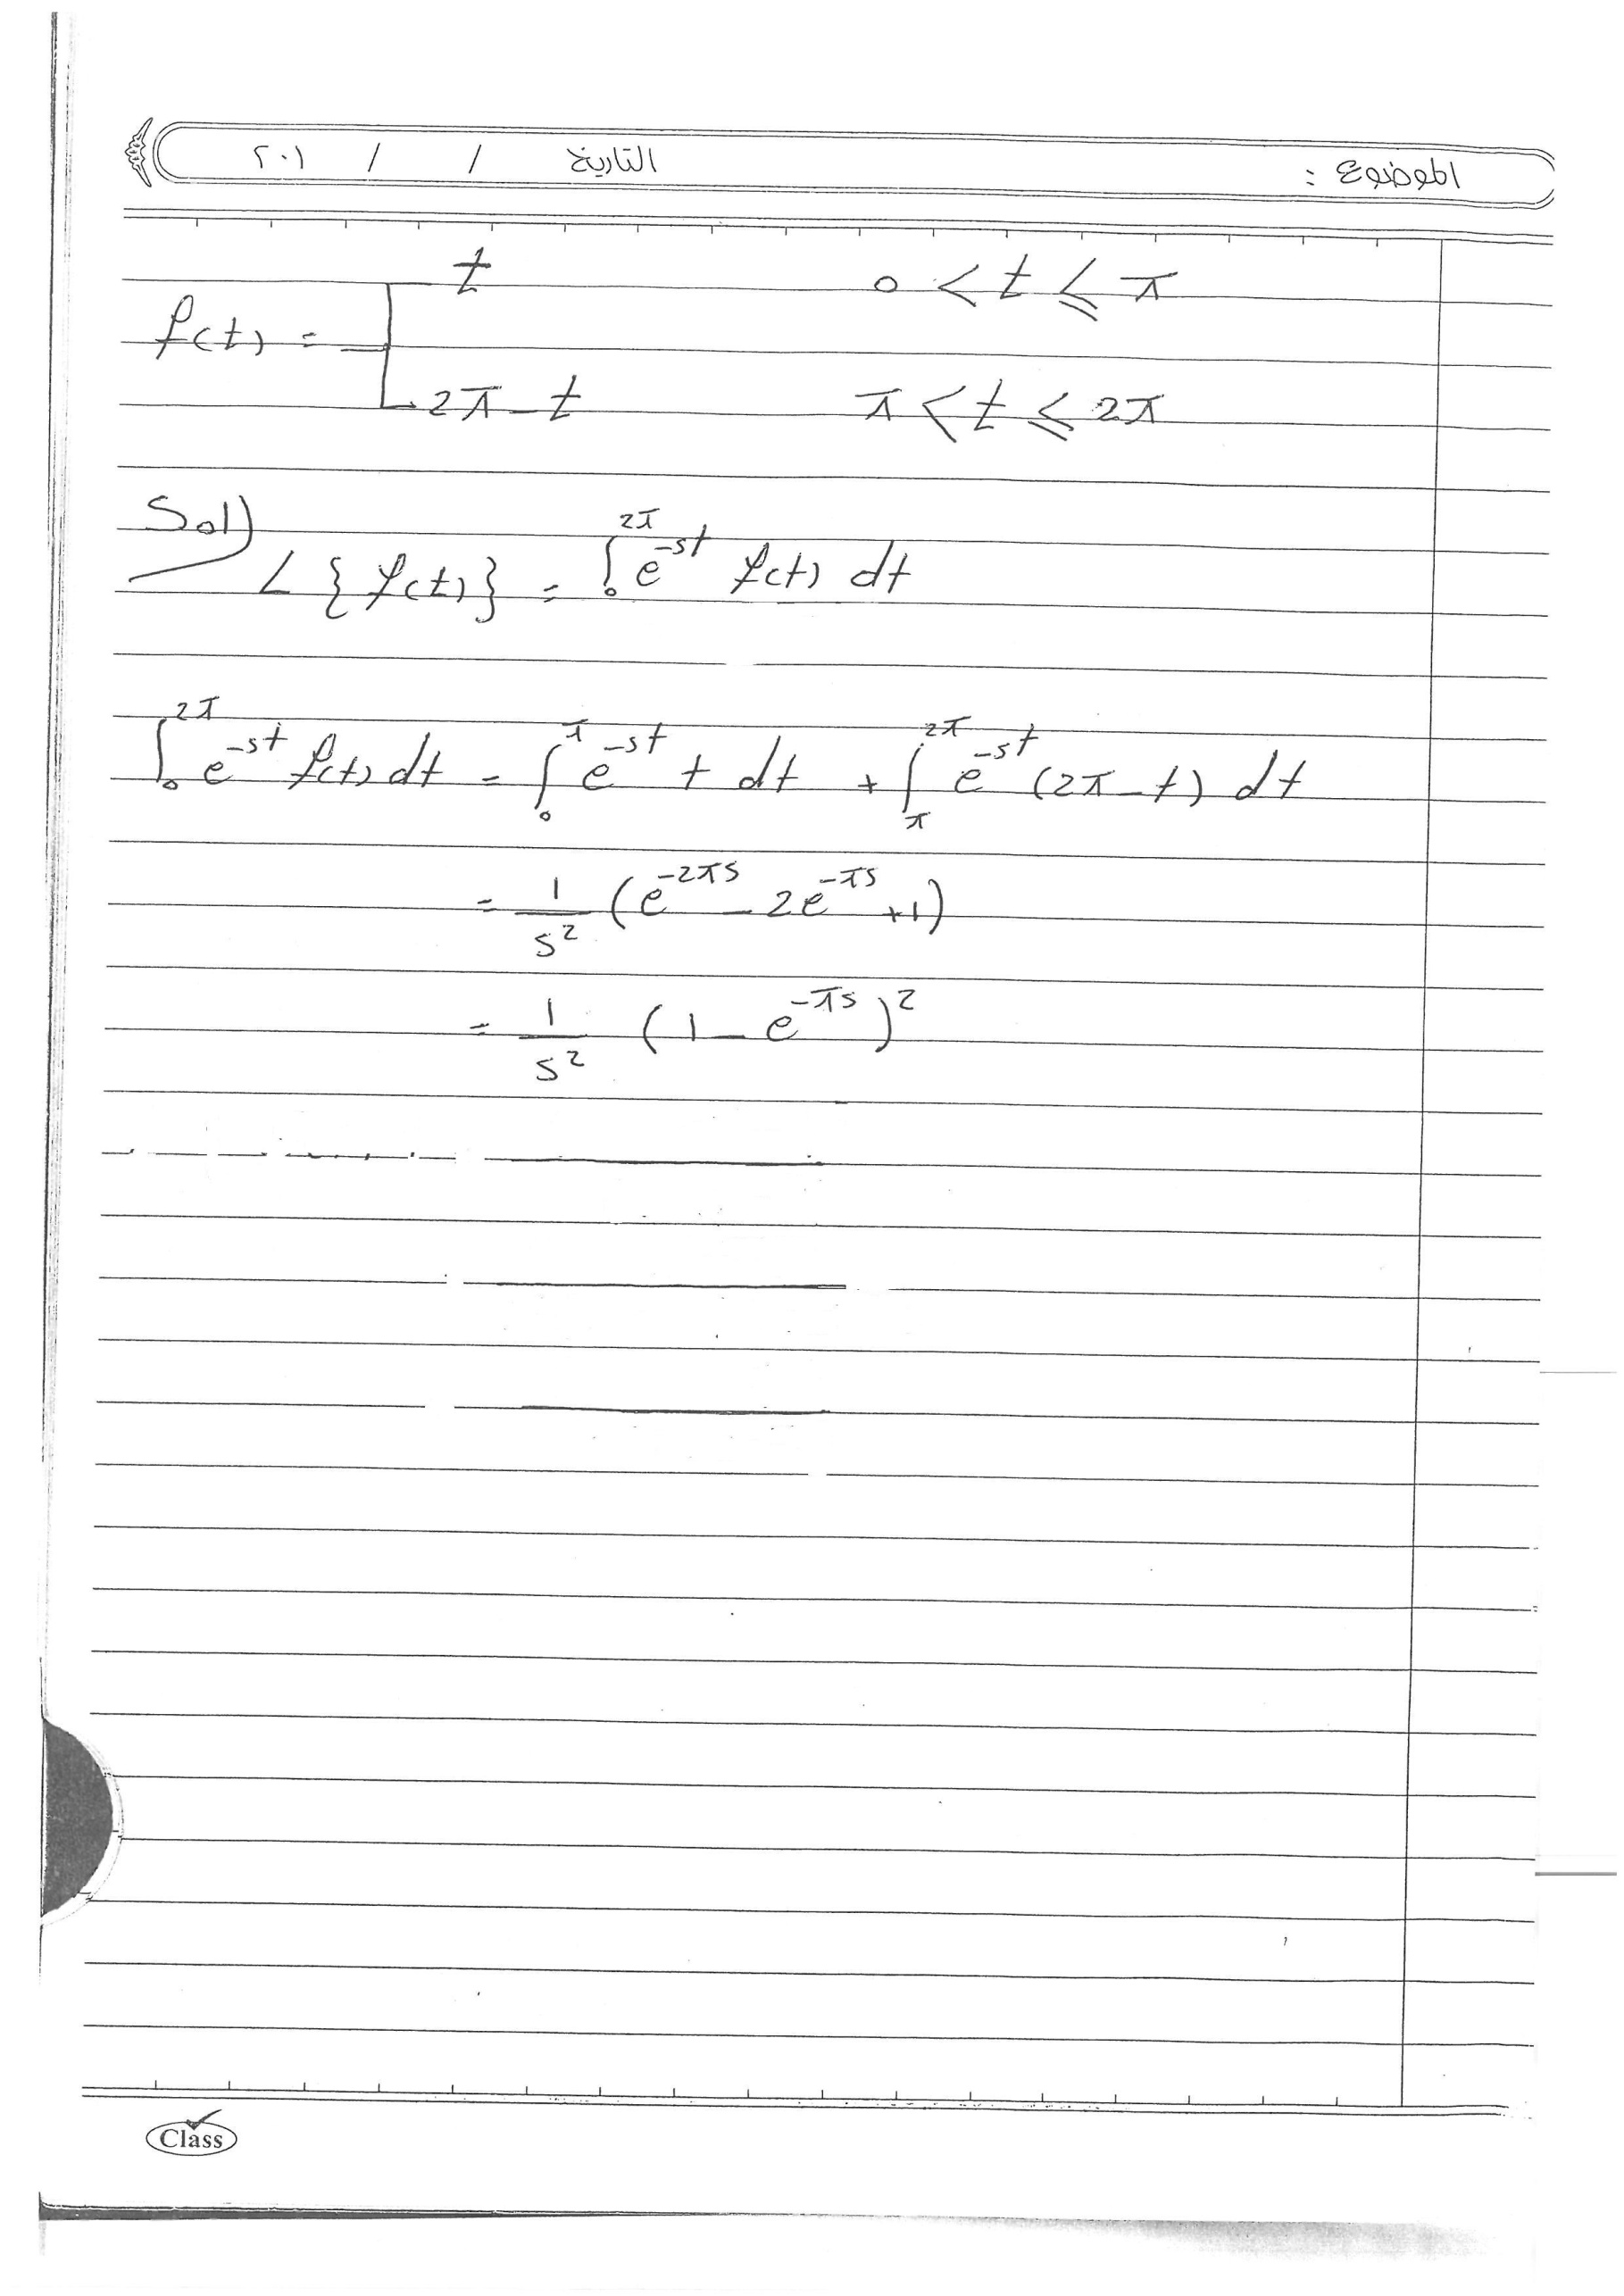 الموضوع : التاريخ / / ٢٠١
f(t) = { t 0 < t ≤ π
2π - t π < t ≤ 2π
Sol)
L { f(t) } = ∫₀^2π e^-st f(t) dt
∫₀^2π e^-st f(t) dt = ∫₀^π e^-st t dt + ∫_π^2π e^-st (2π - t) dt
= 1/s² (e^-2πs - 2e^-πs + 1)
= 1/s² (1 - e^-πs)²
Class